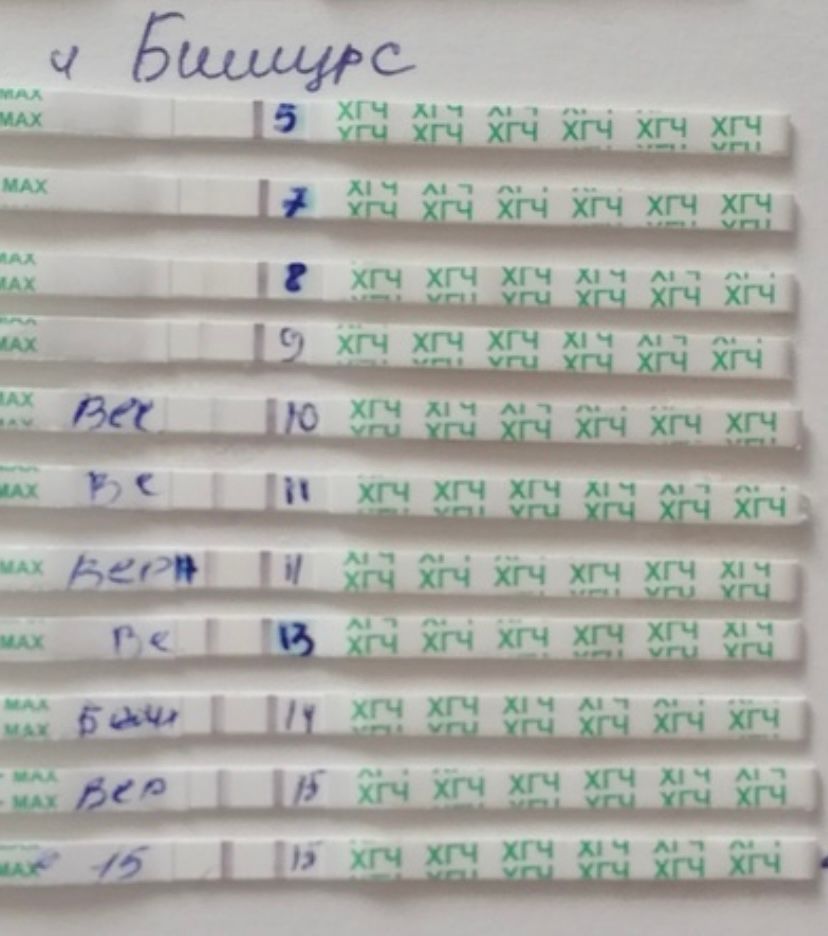 Бишурс
MAX
MAX 5 ХГЧ ХГЧ ХГЧ ХГЧ ХГЧ ХГЧ
MAX 7 ХГЧ ХГЧ ХГЧ ХГЧ ХГЧ ХГЧ
MAX
MAX 8 ХГЧ ХГЧ ХГЧ ХГЧ ХГЧ ХГЧ
MAX 9 ХГЧ ХГЧ ХГЧ ХГЧ ХГЧ ХГЧ
MAX Веч 10 ХГЧ ХГЧ ХГЧ ХГЧ ХГЧ ХГЧ
MAX Ве 11 ХГЧ ХГЧ ХГЧ ХГЧ ХГЧ ХГЧ
MAX 11 ХГЧ ХГЧ ХГЧ ХГЧ ХГЧ ХГЧ
MAX Ве 13 ХГЧ ХГЧ ХГЧ ХГЧ ХГЧ ХГЧ
MAX
MAX 14 ХГЧ ХГЧ ХГЧ ХГЧ ХГЧ ХГЧ
MAX
MAX Вер 15 ХГЧ ХГЧ ХГЧ ХГЧ ХГЧ ХГЧ
MAX 15 15 ХГЧ ХГЧ ХГЧ ХГЧ ХГЧ ХГЧ